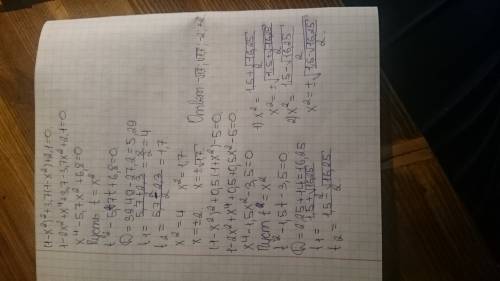 (1-x²)²+3,7(1-x²)+2,1=0
1-2x²+x⁴+3,7-3,7x²+2,1=0
x⁴-5,7x²+6,8=0
Пусть t=x²
t²-5,7t+6,8=0
D=32,49-27,2=5,29
t₁=(5,7+2,3)/2=4
t₂=(5,7-2,3)/2=1,7
x²=4 x²=1,7
x=±2 x=±√1,7
Ответ: -√1,7; √1,7; -2; +2
(1-x²)²+0,5(1+x²)-5=0
1-2x²+x⁴+0,5+0,5x²-5=0
x⁴-1,5x²-3,5=0
Пусть t=x²
t²-1,5t-3,5=0
D=2,25+14=16,25
t₁=(1,5+√16,25)/2
t₂=(1,5-√16,25)/2
1) x²=(1,5+√16,25)/2
x=±√((1,5+√16,25)/2)
2) x²=(1,5-√16,25)/2
x²=±√((1,5-√16,25)/2)